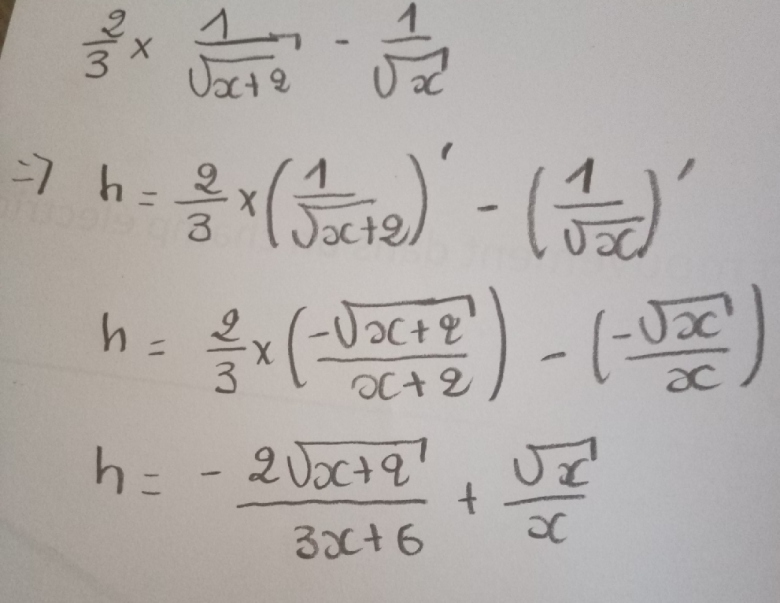 2/3 × 1/√(x+2) - 1/√x
=> h = 2/3 × (1/√(x+2))' - (1/√x)'
h = 2/3 × (-√(x+2)/(x+2)) - (-√x/x)
h = - 2√(x+2)/(3x+6) + √x/x